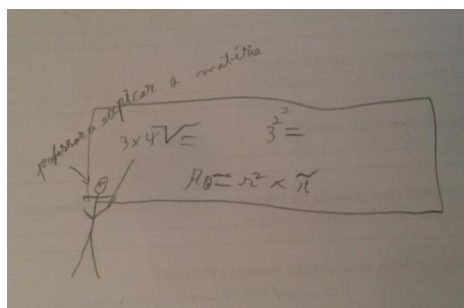 professor a explicar a matéria
3 x 4 √ =
3²=
A⊙= r² x π